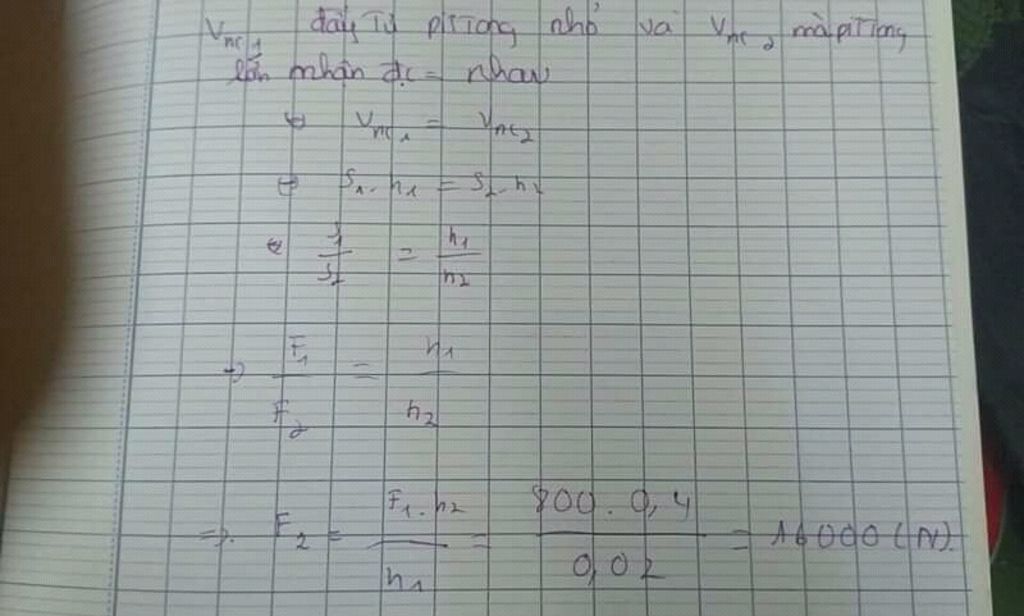 Vnc1 đẩy từ pittong nhỏ và Vnc2 mà pittong
lớn nhận đc = nhau
⇔ Vnc1 = Vnc2
⇔ S1.h1 = S2.h2
⇔ S1/S2 = h1/h2
=> F1/F2 = h1/h2
=> F2 = F1.h2/h1 = 800.0,4/0,02 = 16000 (N).